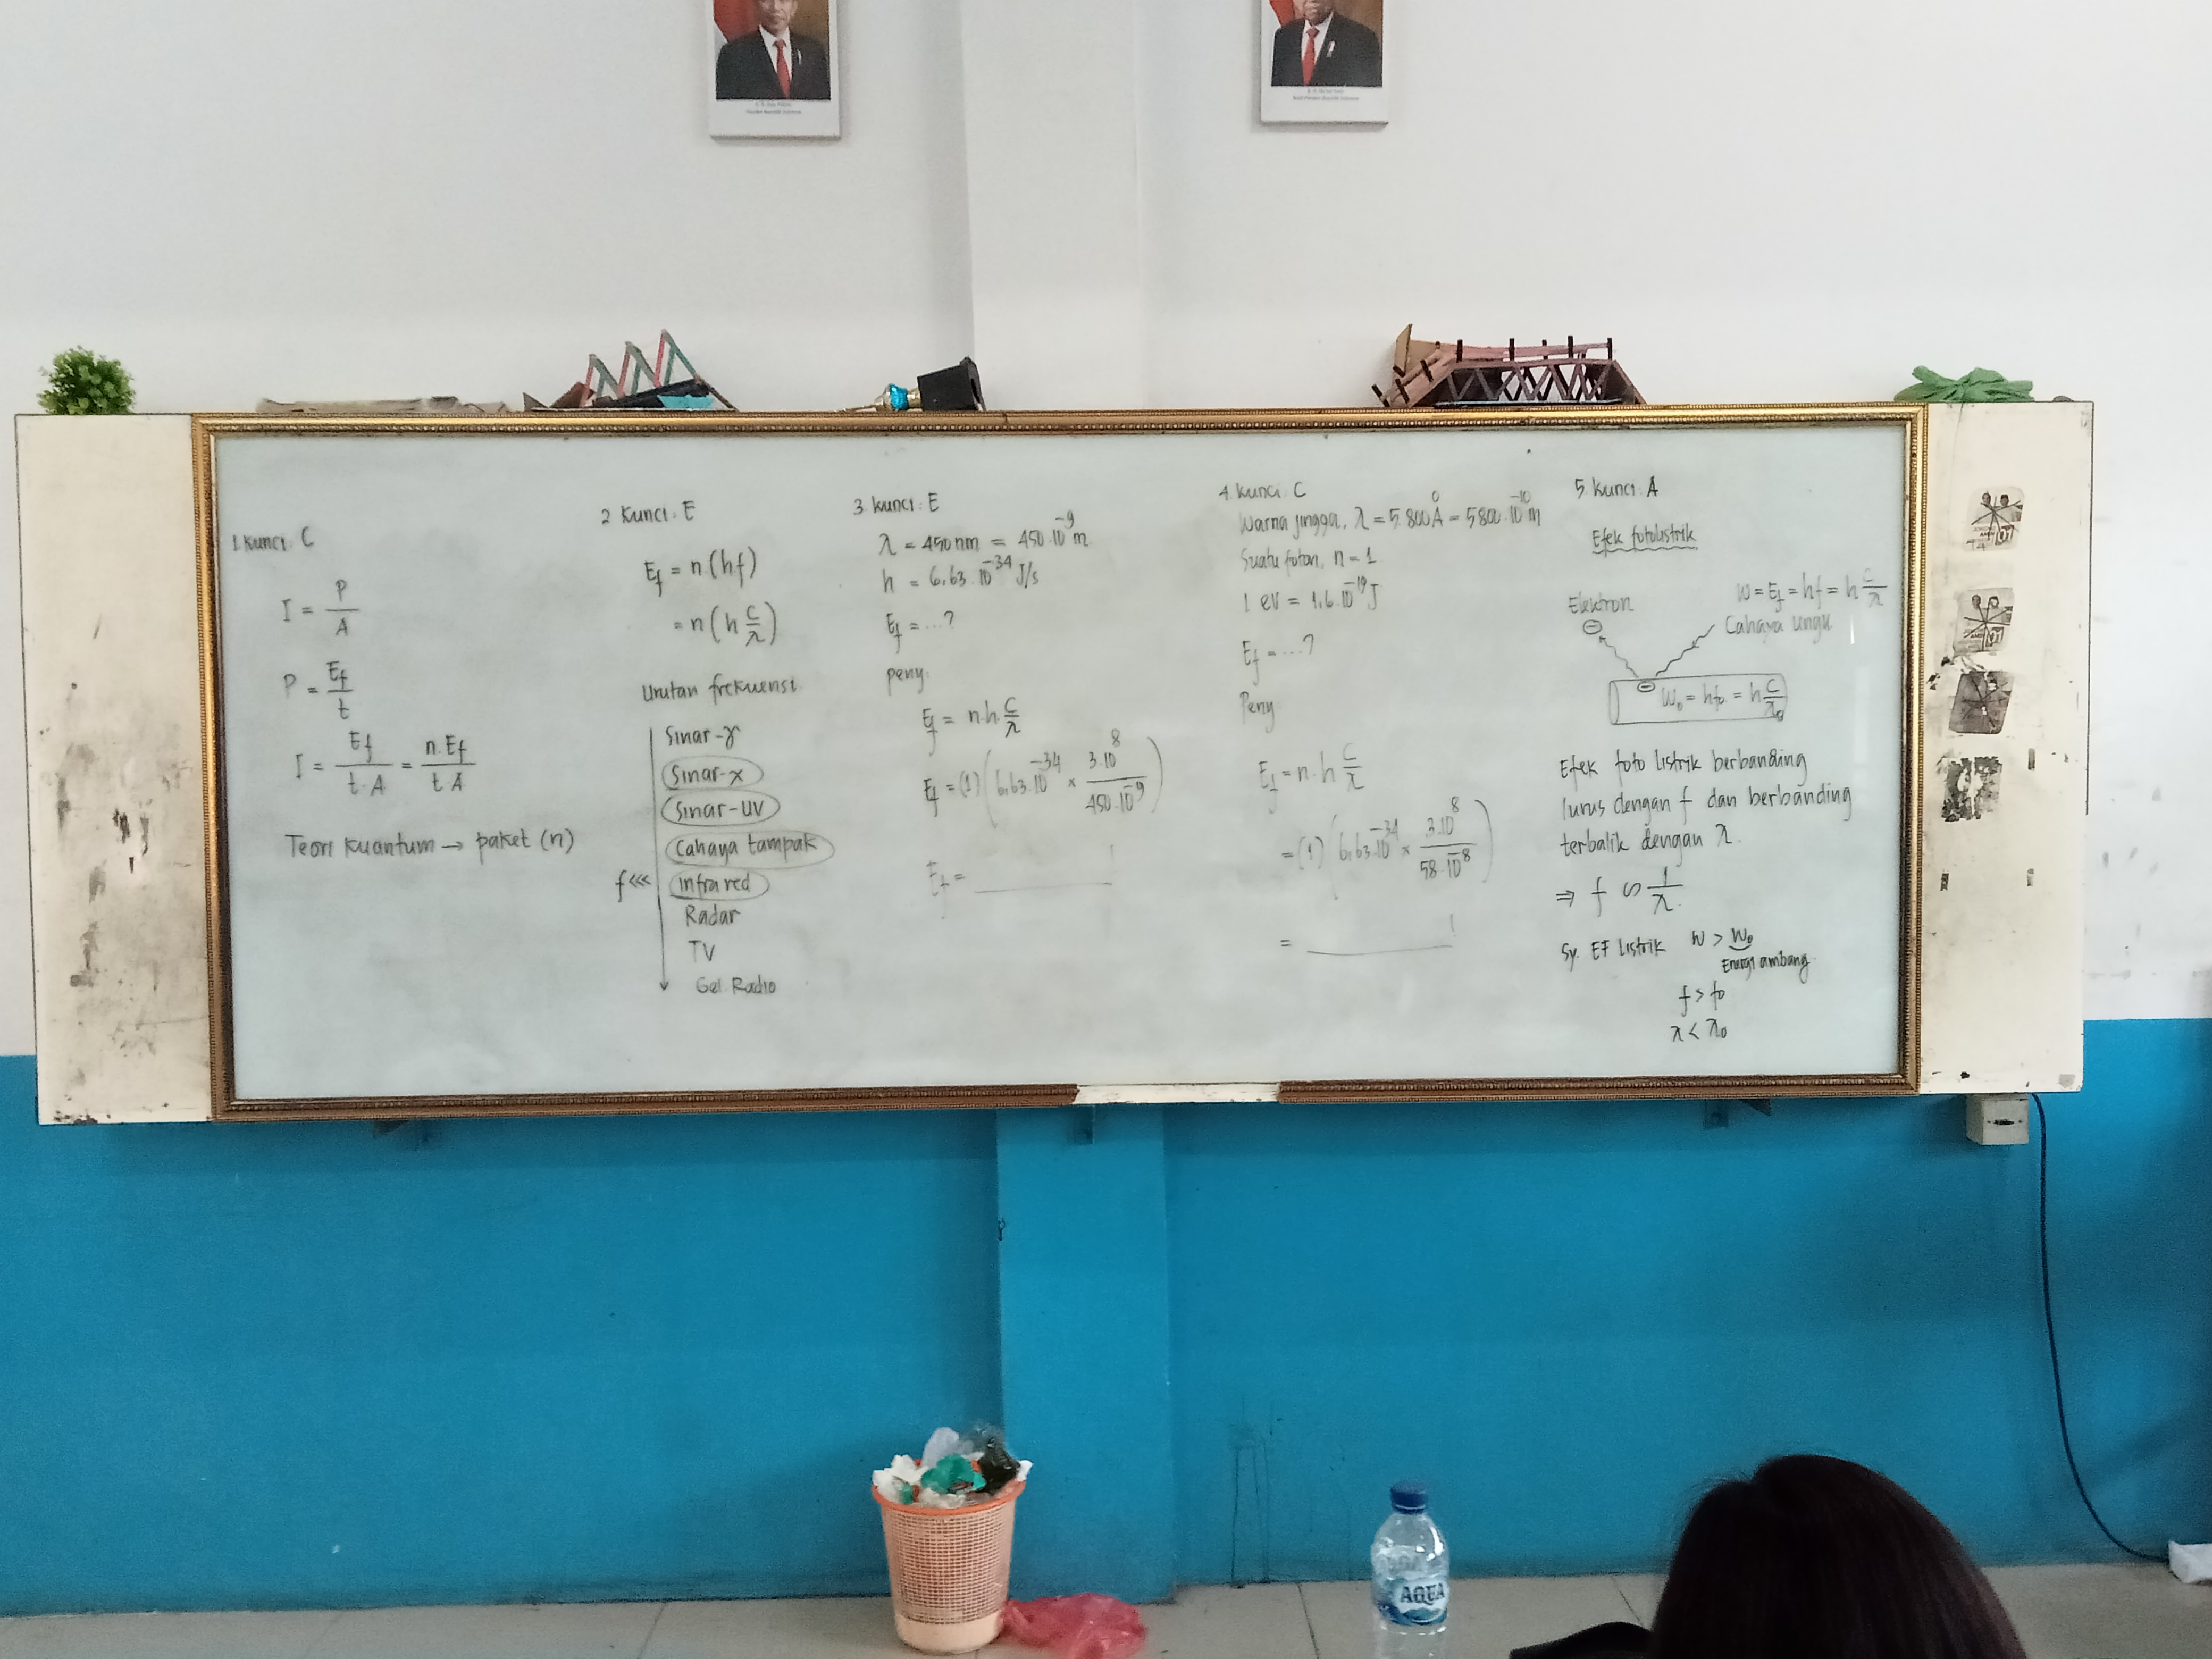 1. Kunci: C
I = P/A
P = Ef/t
I = Ef/t.A = n.Ef/t A
Teori kuantum → paket (n)
2. Kunci: E
Ef = n (hf)
= n (h c/λ)
Urutan frekuensi
Sinar-γ
Sinar-x
Sinar-uv
Cahaya tampak
f <<<
infra red
Radar
TV
Gel. Radio
3. kunci: E
λ = 450 nm = 450.10⁻⁹ m
h = 6,63.10⁻³⁴ J/s
Ef = ...?
peny:
Ef = n.h c/λ
Ef = (1) (6,63.10⁻³⁴ × 3.10⁸/450.10⁻⁹)
Ef = ______ !
4. Kunci: C
Warna jingga, λ = 5.800 Å = 5800.10⁻¹⁰ m
Suatu foton, n = 1
1 ev = 1,6.10⁻¹⁹ J
Ef = ...?
Peny:
Ef = n.h c/λ
= (1) (6,63.10⁻³⁴ × 3.10⁸/58.10⁻⁸)
= ______ !
5. Kunci: A
Efek fotolistrik
Elektron
W = Ef = hf = h c/λ
Cahaya ungu
W₀ = hf₀ = h c/λ₀
Efek foto listrik berbanding
lurus dengan f dan berbanding
terbalik dengan λ.
⇒ f ∽ 1/λ
Sy. EF Listrik W > W₀
Energi ambang
f > f₀
λ < λ₀
AQUA